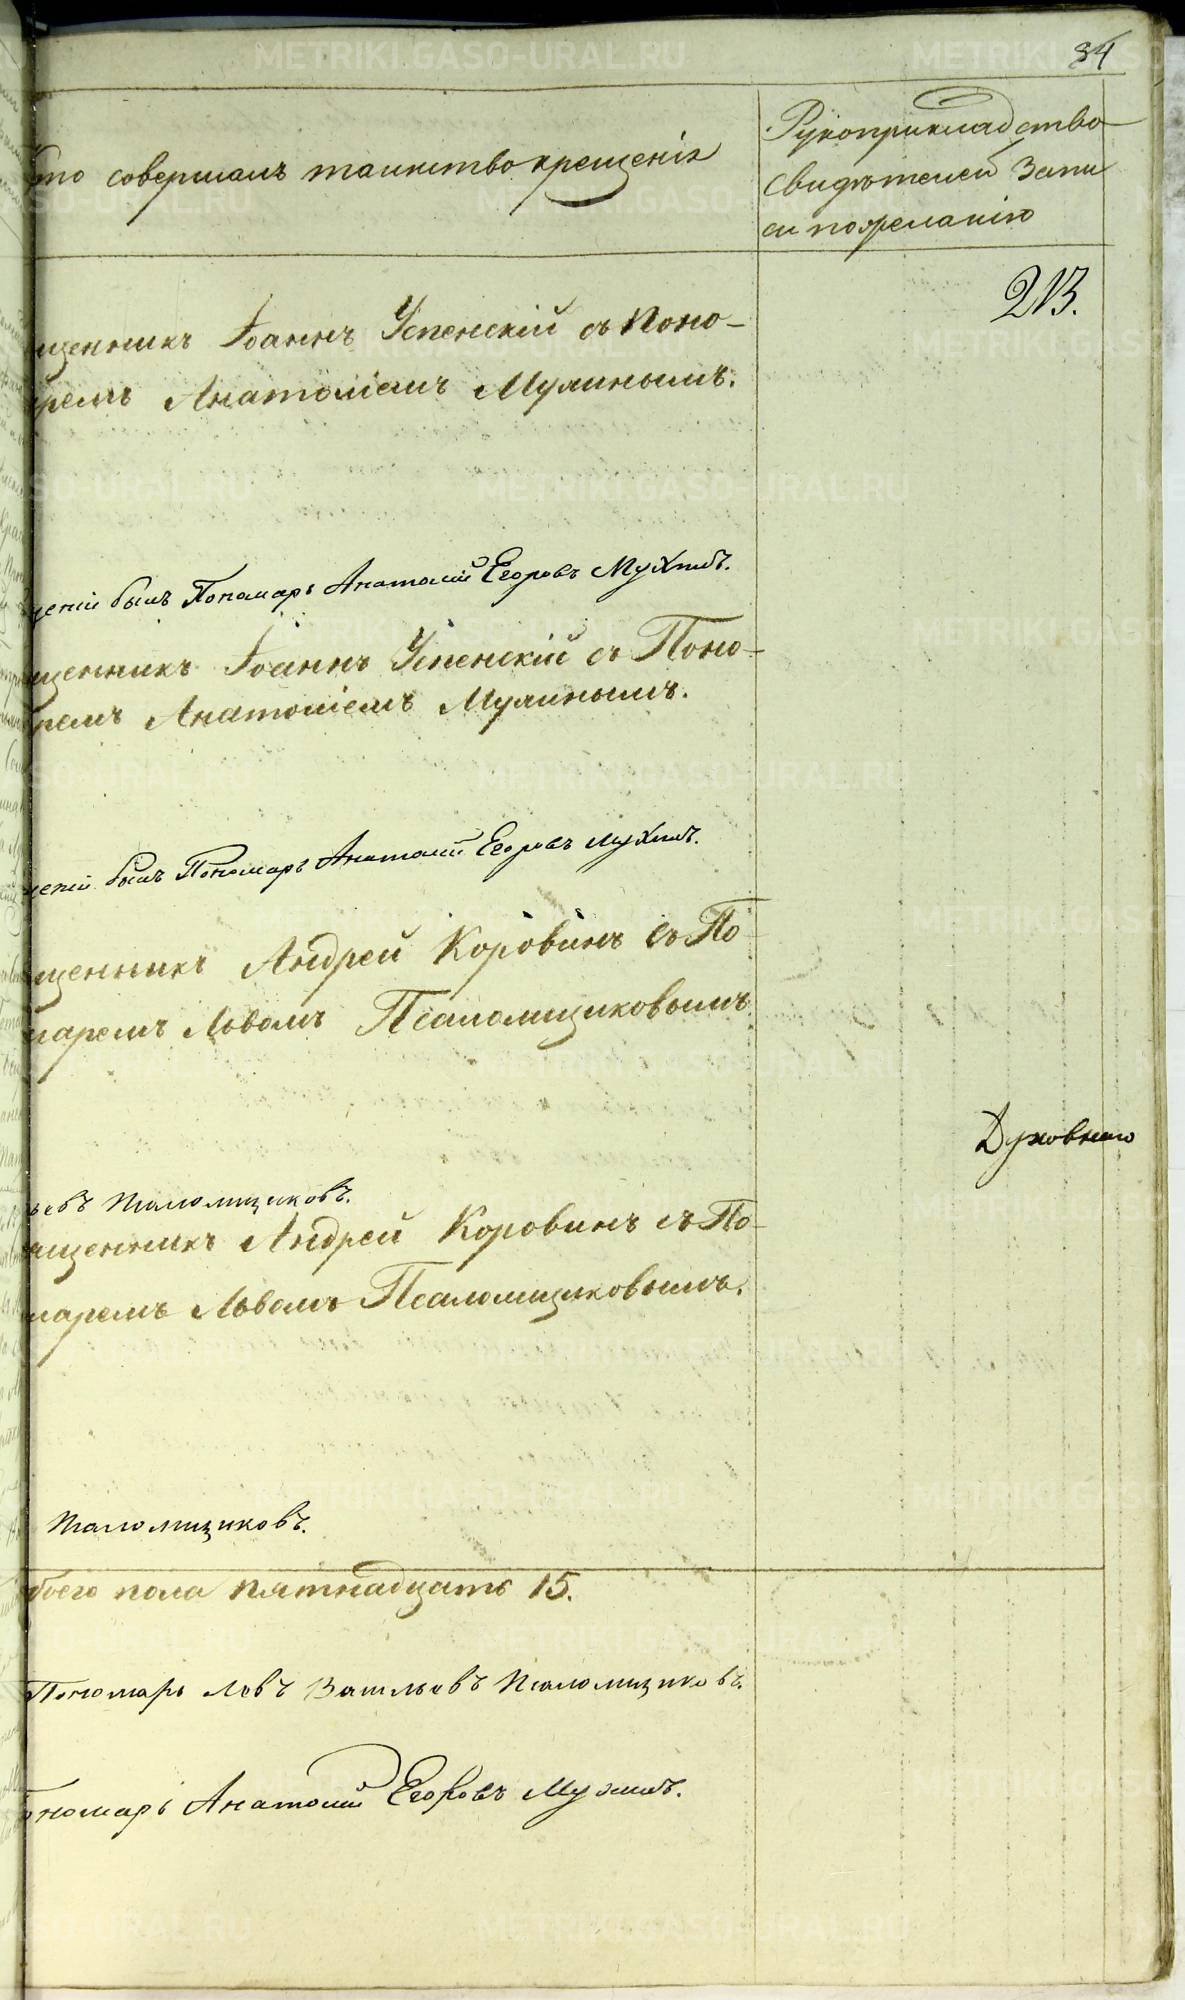 84
то совершалъ таинство крещенія
Рукоприкладство
свидѣтелей запи
си по желанію
213.
щенникъ Іоаннъ Успенскій съ Поно-
ремъ Анатоліемъ Мухинымъ.
щеніи былъ Пономарь Анатолій Егоровъ Мухинъ.
щенникъ Іоаннъ Успенскій съ Поно-
ремъ Анатоліемъ Мухинымъ.
щеніи былъ Пономарь Анатолій Егоровъ Мухинъ.
щенникъ Андрей Коровинъ съ По-
маремъ Львомъ Псаломщиковымъ
Духовнаго
ьевъ Псаломщиковъ.
щенникъ Андрей Коровинъ съ По-
маремъ Львомъ Псаломщиковымъ.
Псаломщиковъ.
обоего пола пятнадцать 15.
Пономарь Левъ Васильевъ Псаломщиковъ.
ономарь Анатолій Егоровъ Мухинъ.